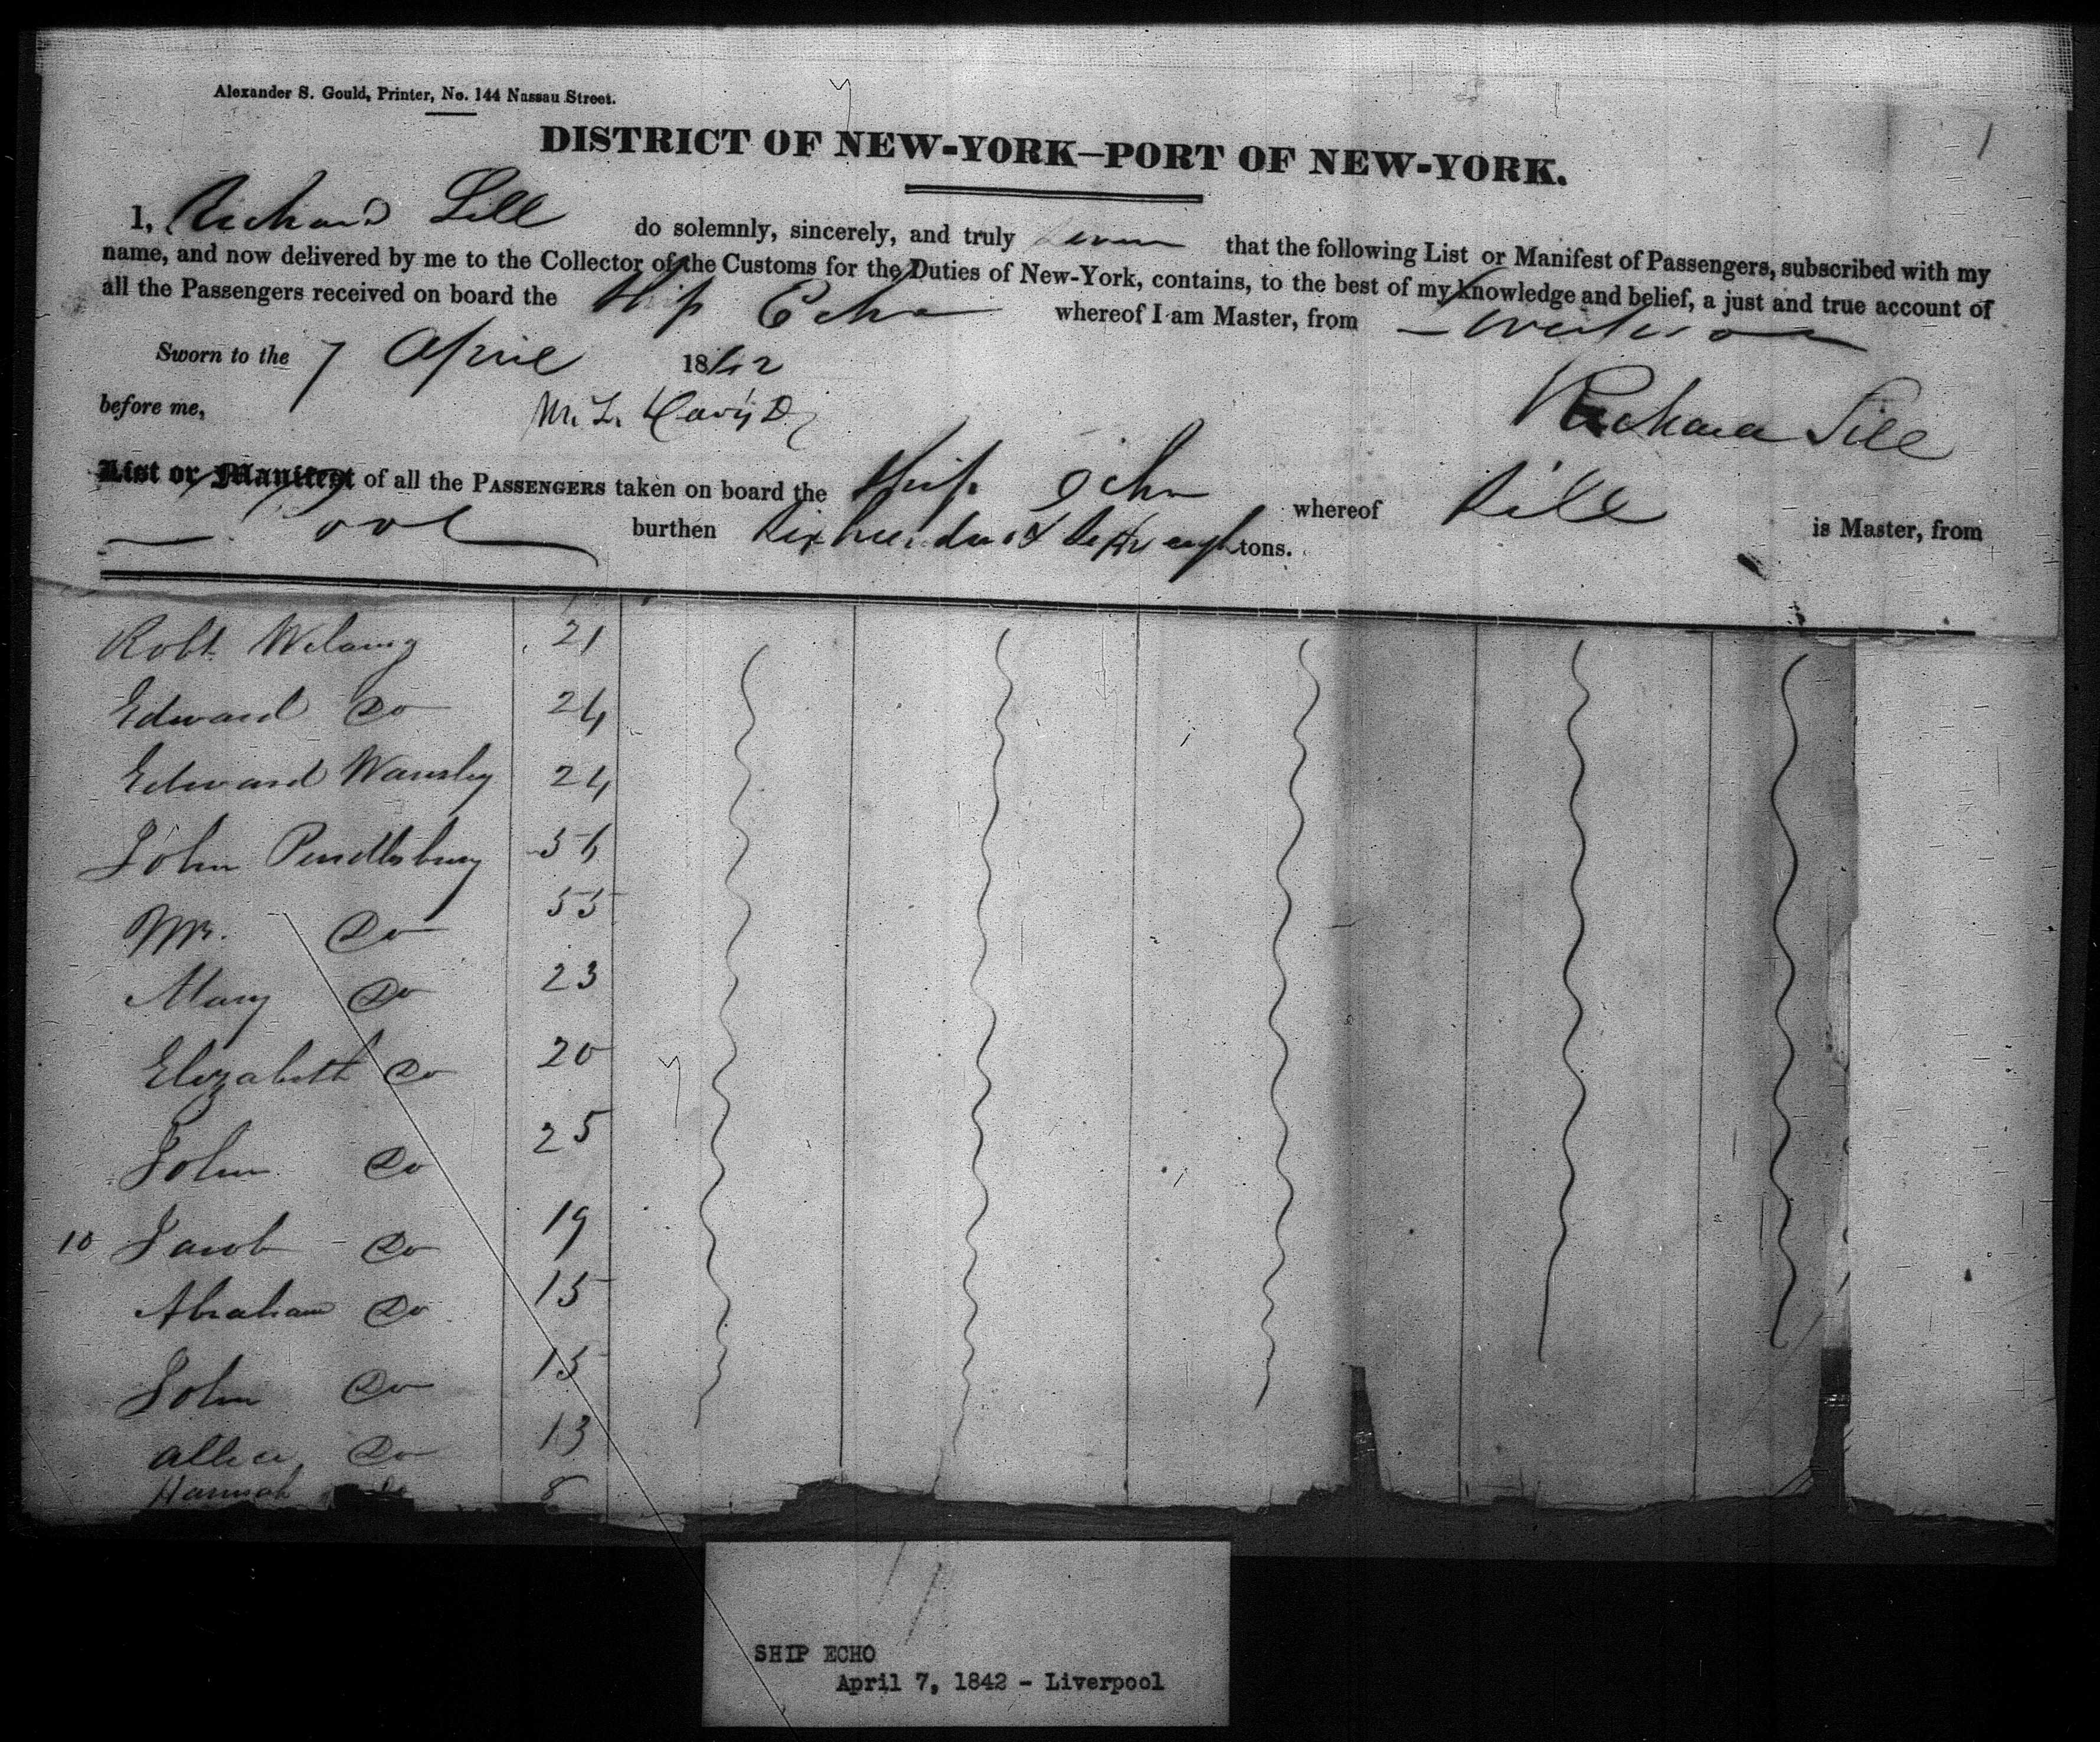 Alexander S. Gould, Printer, No. 144 Nassau Street.
DISTRICT OF NEW-YORK—PORT OF NEW-YORK.
I, Richard Sill do solemnly, sincerely, and truly that the following List or Manifest of Passengers, subscribed with my
name, and now delivered by me to the Collector of the Customs for the Duties of New-York, contains, to the best of my knowledge and belief, a just and true account of
all the Passengers received on board the Ship Echo whereof I am Master, from Liverpool
Sworn to the 7 April 1842
before me,
Richard Sill
List or Manifest of all the PASSENGERS taken on board the Ship Echo whereof Sill is Master, from
L. Pool burthen Six hundred tons.
Robt 21
Edward Do 24
Edward Wamsley 24
John Pendlebury 56
Mr. Do 55
Mary Do 23
Elizabeth Do 20
John Do 25
10 Jacob Do 19
Abraham Do 15
John Do 15
Allice Do 13
Hannah Do 8
SHIP ECHO
April 7, 1842 - Liverpool